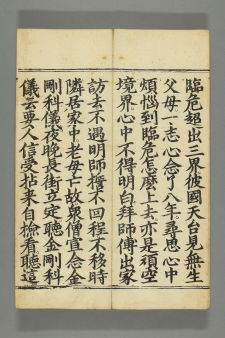 臨危超出三界彼國天台見無生
父母一志心念了八年尋思心中
煩惱到臨危怎麼上去亦是頑空
境界心中不得明白拜師傅出家
訪去不遇明師誓不回程不移時
隣居家中老母亡故眾僧宣念金
剛科儀夜晚長街立定聽金剛科
儀云要人信受拈來自檢看聽這